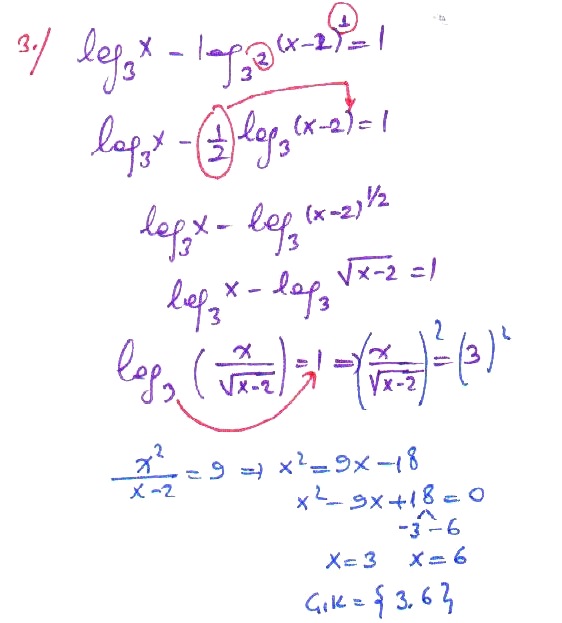 3.) log₃x - log₃²(x-2)¹ = 1
log₃x - 1/2 log₃(x-2) = 1
log₃x - log₃(x-2)^1/2
log₃x - log₃√(x-2) = 1
log₃(x/√(x-2)) = 1 ⇒ (x/√(x-2))² = (3)²
x²/(x-2) = 9 ⇒ x² = 9x - 18
x² - 9x + 18 = 0
-3 -6
x = 3 x = 6
Ç.K = {3.6}